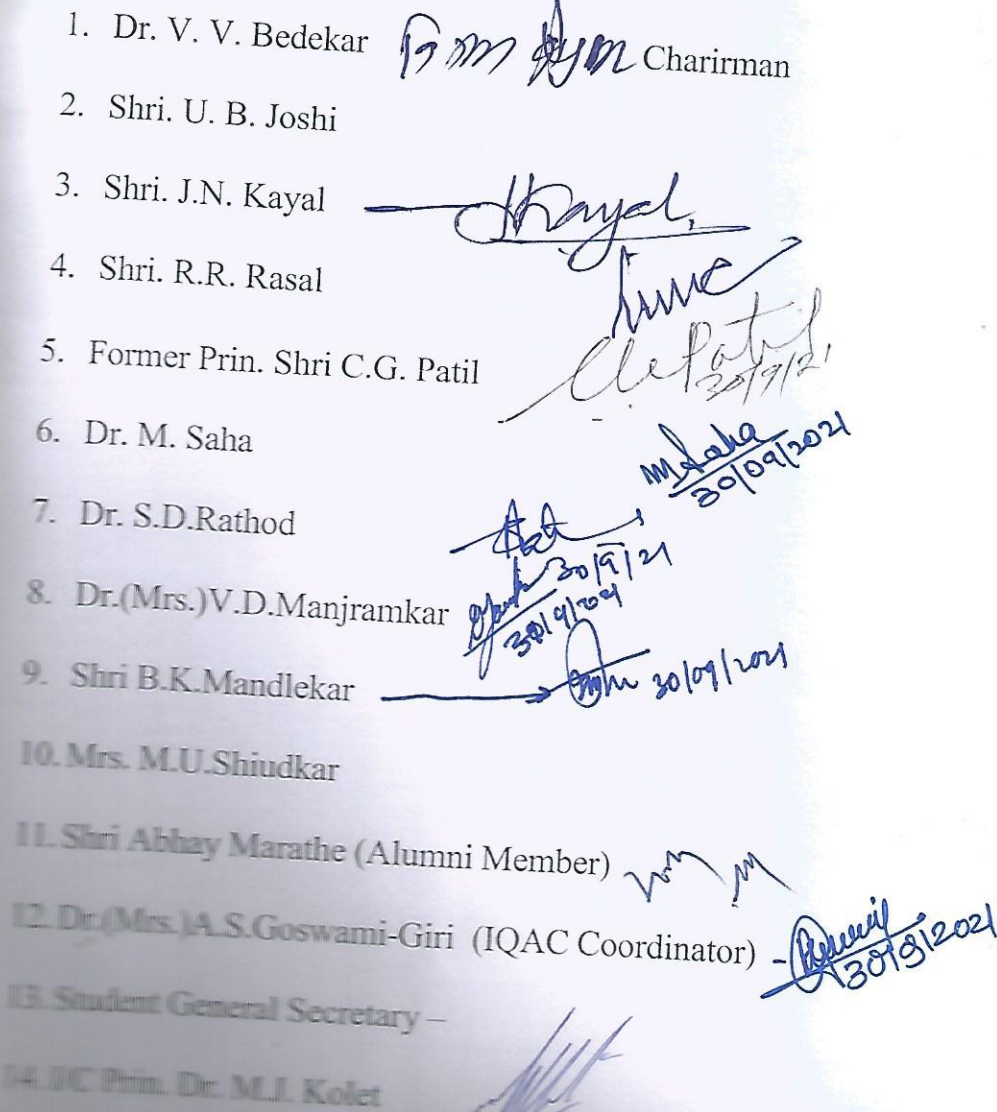 1. Dr. V. V. Bedekar Charirman
2. Shri. U. B. Joshi
3. Shri. J.N. Kayal
4. Shri. R.R. Rasal
5. Former Prin. Shri C.G. Patil
30/9/21
6. Dr. M. Saha MSaha
30/09/2021
7. Dr. S.D.Rathod
30/9/21
8. Dr.(Mrs.)V.D.Manjramkar
30/9/2021
9. Shri B.K.Mandlekar 30/09/2021
10. Mrs. M.U.Shiudkar
11. Shri Abhay Marathe (Alumni Member)
12. Dr.(Mrs.)A.S.Goswami-Giri (IQAC Coordinator) -
30/9/2021
13. Student General Secretary –
14. I/C Prin. Dr. M.J. Kolet